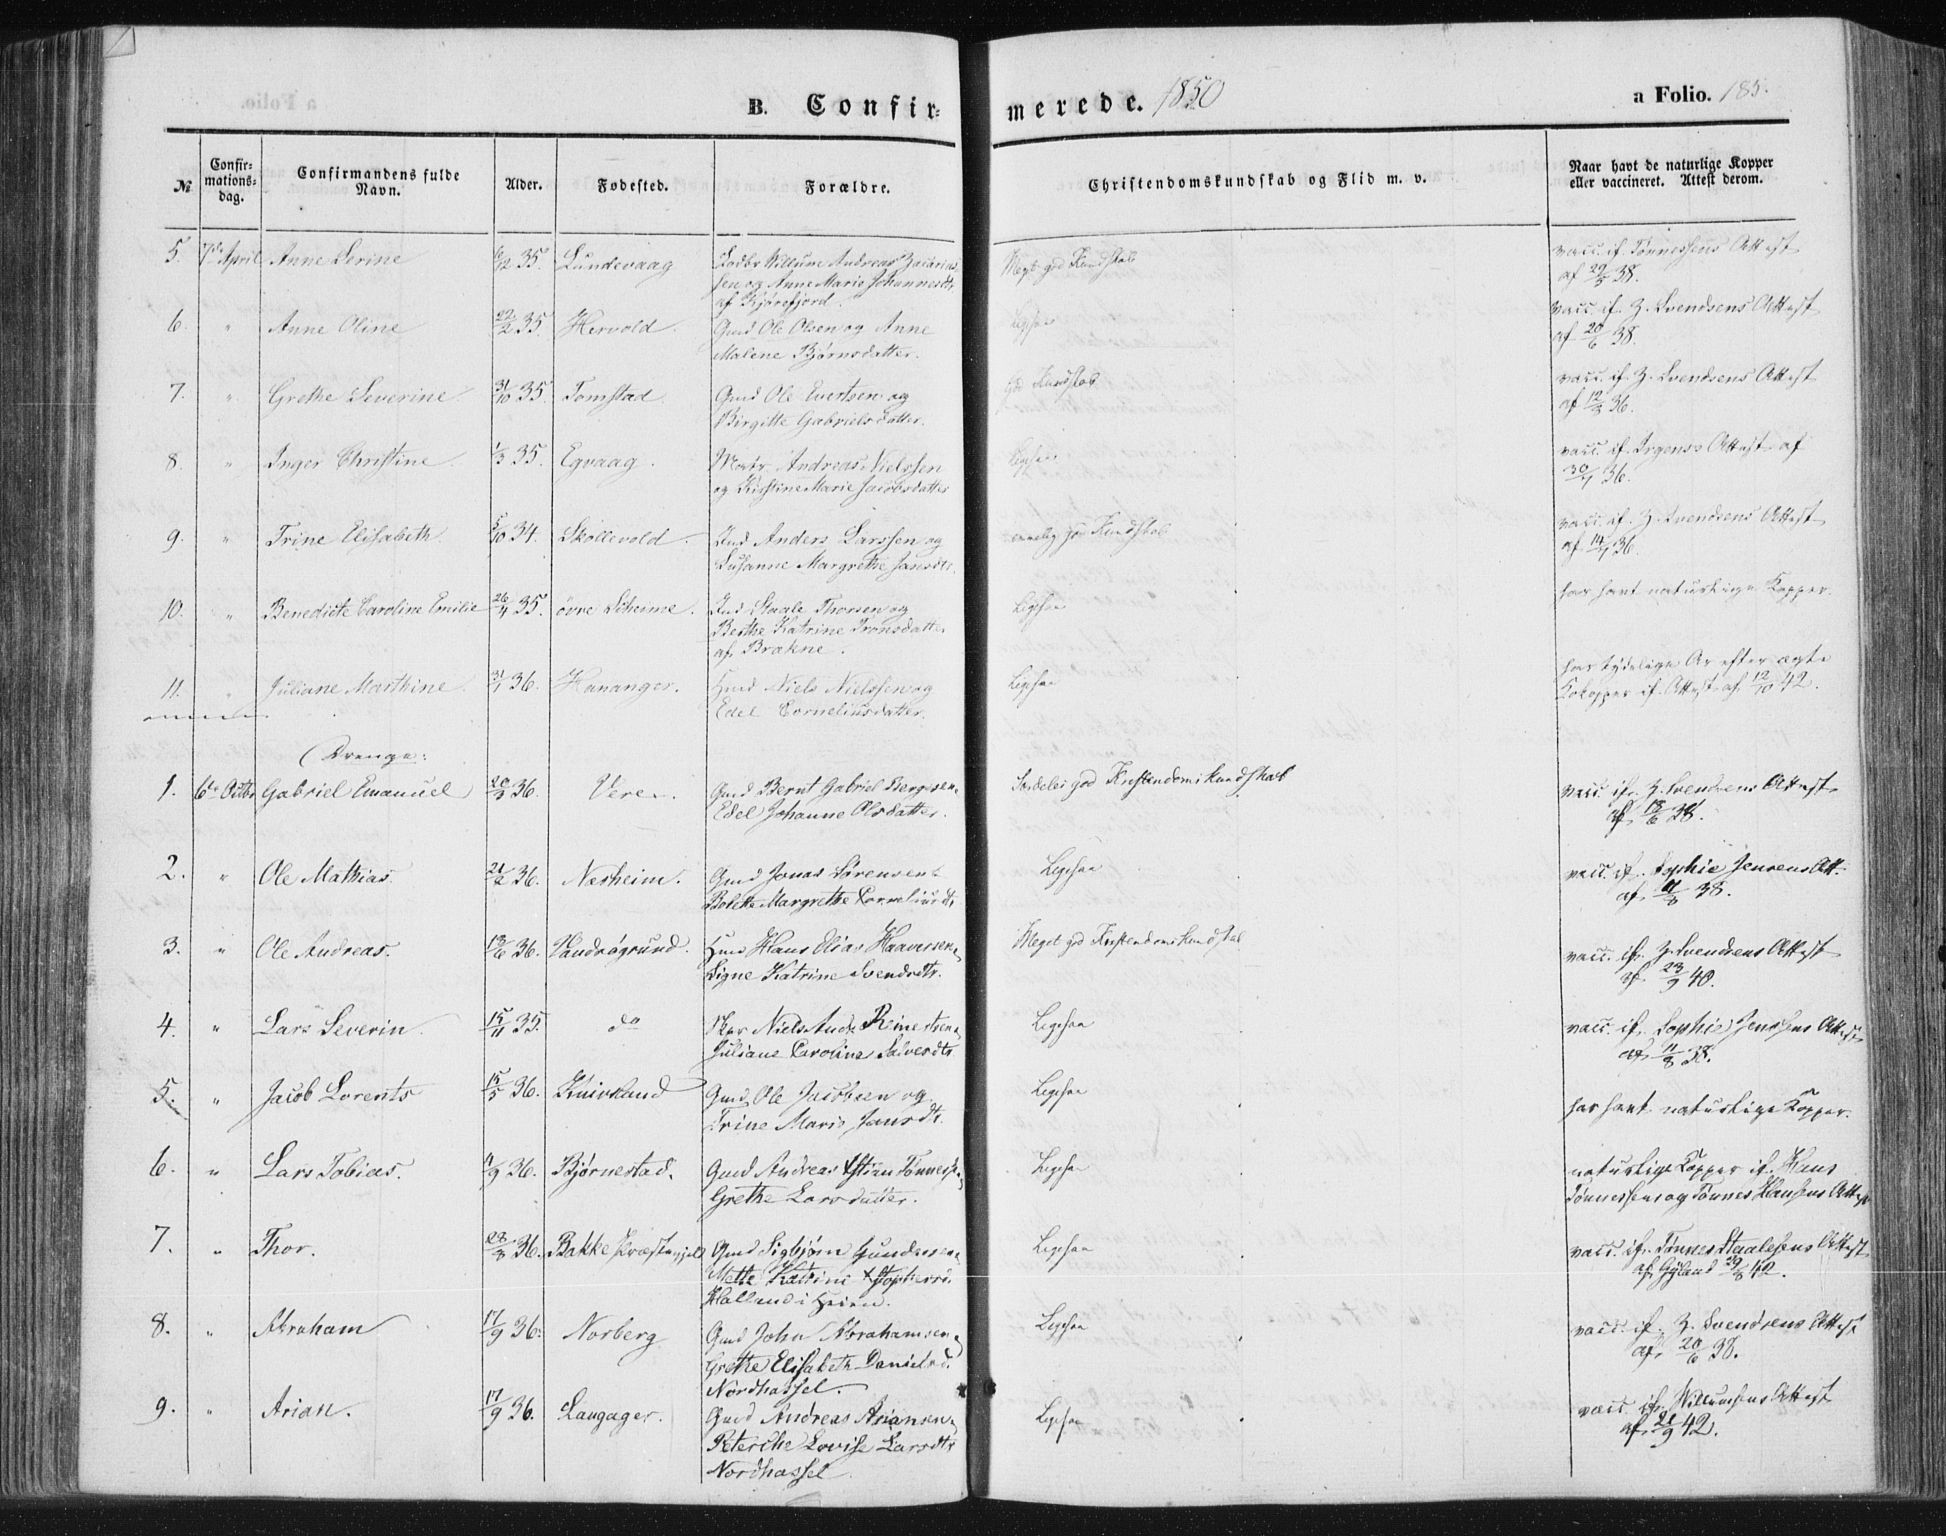 B. Confir-
merede. 1850
a Folio. 185.
№
Confir-
mations-
dag.
Confirmandens fulde
Navn.
Alder.
Fødested.
Forældre.
Christendomskundskab og Flid m. v.
Naar havt de naturlige Kopper
eller vaccineret. Attest derom.
5. 7de April Anne Serine 6/12 35. Lundevaag
Willum Andreas Zacarias-
sen og Anne Marie Johannesdtr
af Kjørefjord.
Meget god Kundskab
vacc. if. Tønnessens Attest
af 29/5 38.
6. " Anne Oline 22/2 35. Hervold.
Gmd Ole Olsen og Anne
Malene Bjørnsdatter.
Ligesaa
vacc. if. Z. Svendsens Attest
af 20/6 38.
7. " Grethe Severine 31/10 35. Tomstad
Gmd Ole Evertsen og
Birgitte Gabrielsdatter.
God Kundskab
vacc. if. Z. Svendsens Attest
af 12/8 36.
8. " Inger Christine. 1/3 35. Egvaag.
Andreas Nielssen
og Kistine Marie Jacobsdatter
Ligesaa
vacc. if. Irgens's Attest af
30/7 36.
9. " Trine Elisabeth. 5/10 34. Skollevold.
Ind Anders Larssen og
Susanne Margrethe Jansdtr.
temmelig god Kundskab
vacc. if. Z. Svendsens Attest
af 14/7 36.
10. " Benedicte Caroline Emilie 26/4 35. övre Scheime.
Ind Staale Thorsen og
Berthe Katrine Tronsdatter
af Brakne.
Ligesaa
har havt naturlige Kopper.
11. " Juliane Marthine. 31/1 36. Hananger.
Gmd Niels Nielssen og
Edel Corneliusdatter.
Ligesaa
har tydelige Ar efter ægte
Kokopper if. Attest af 12/10 42.
Drenge:
1. 6te Octbr Gabriel Emanuel 20/3 36. Vere.
Gmd Bernt Gabriel Bergesen
Edel Johanne Olsdatter.
Særdeles god Kristendomskundskab
vacc. if. Z. Svendsens Attest
af 18/6 38.
2. " Ole Mathias. 21/2 36. Nesheim.
Gmd Jonas Sörensen
Bolette Margrethe Corneliusdtr
Ligesaa
vacc. if. Sophie Jensens Att.
af 11/8 38.
3. " Ole Andreas. 18/6 36. Vandrögrund.
Hmd Hans Elias Haaversen
Signe Katrine Svendsdtr.
Meget god Kristendomskundskab
vacc. if. Z. Svendsens Attest
af 23/9 40.
4. " Lars Severin. 15/11 35. do
Niels Andr. Reinertsen
Juliane Caroline Salvesdtr
Ligesaa
vacc. if. Sophie Jenssens Attest
af 11/8 38.
5. " Jacob Lorents 15/5 36. Knivsland
Gmd Ole Jacobsen og
Trine Marie Jansdtr.
Ligesaa
har havt naturlige Kopper.
6. " Lars Tobias. 4/9 36. Bjørnestad.
Gmd Andreas Xstian Tønnessen
Grethe Larsdatter.
Ligesaa
naturlige Kopper if. Hans
Tønnessens og Tønnes Hansens Attest
7. " Thor. 28/8 36. Bakke Præstegjeld
Gmd Sigbjørn Gundersen
Mette Katrine Xstophersd.
Halland i Heien.
Ligesaa
vacc. if. Tønnes Staalesens Attest
af Gyland 29/8 42.
8. " Abraham 17/9 36. Norberg
Gmd John Abrahamsen
Grethe Elisabeth Danielsd.
Nordhassel.
Ligesaa
vacc. if. Z. Svendsens Attest
af 20/6 38.
9. " Arian. 17/9 36. Langager.
Gmd Andreas Ariansen
Peterche Lovise Larsdtr
Nordhassel
Ligesaa
vacc. if. Willumsens Attest
af 21/9 42.